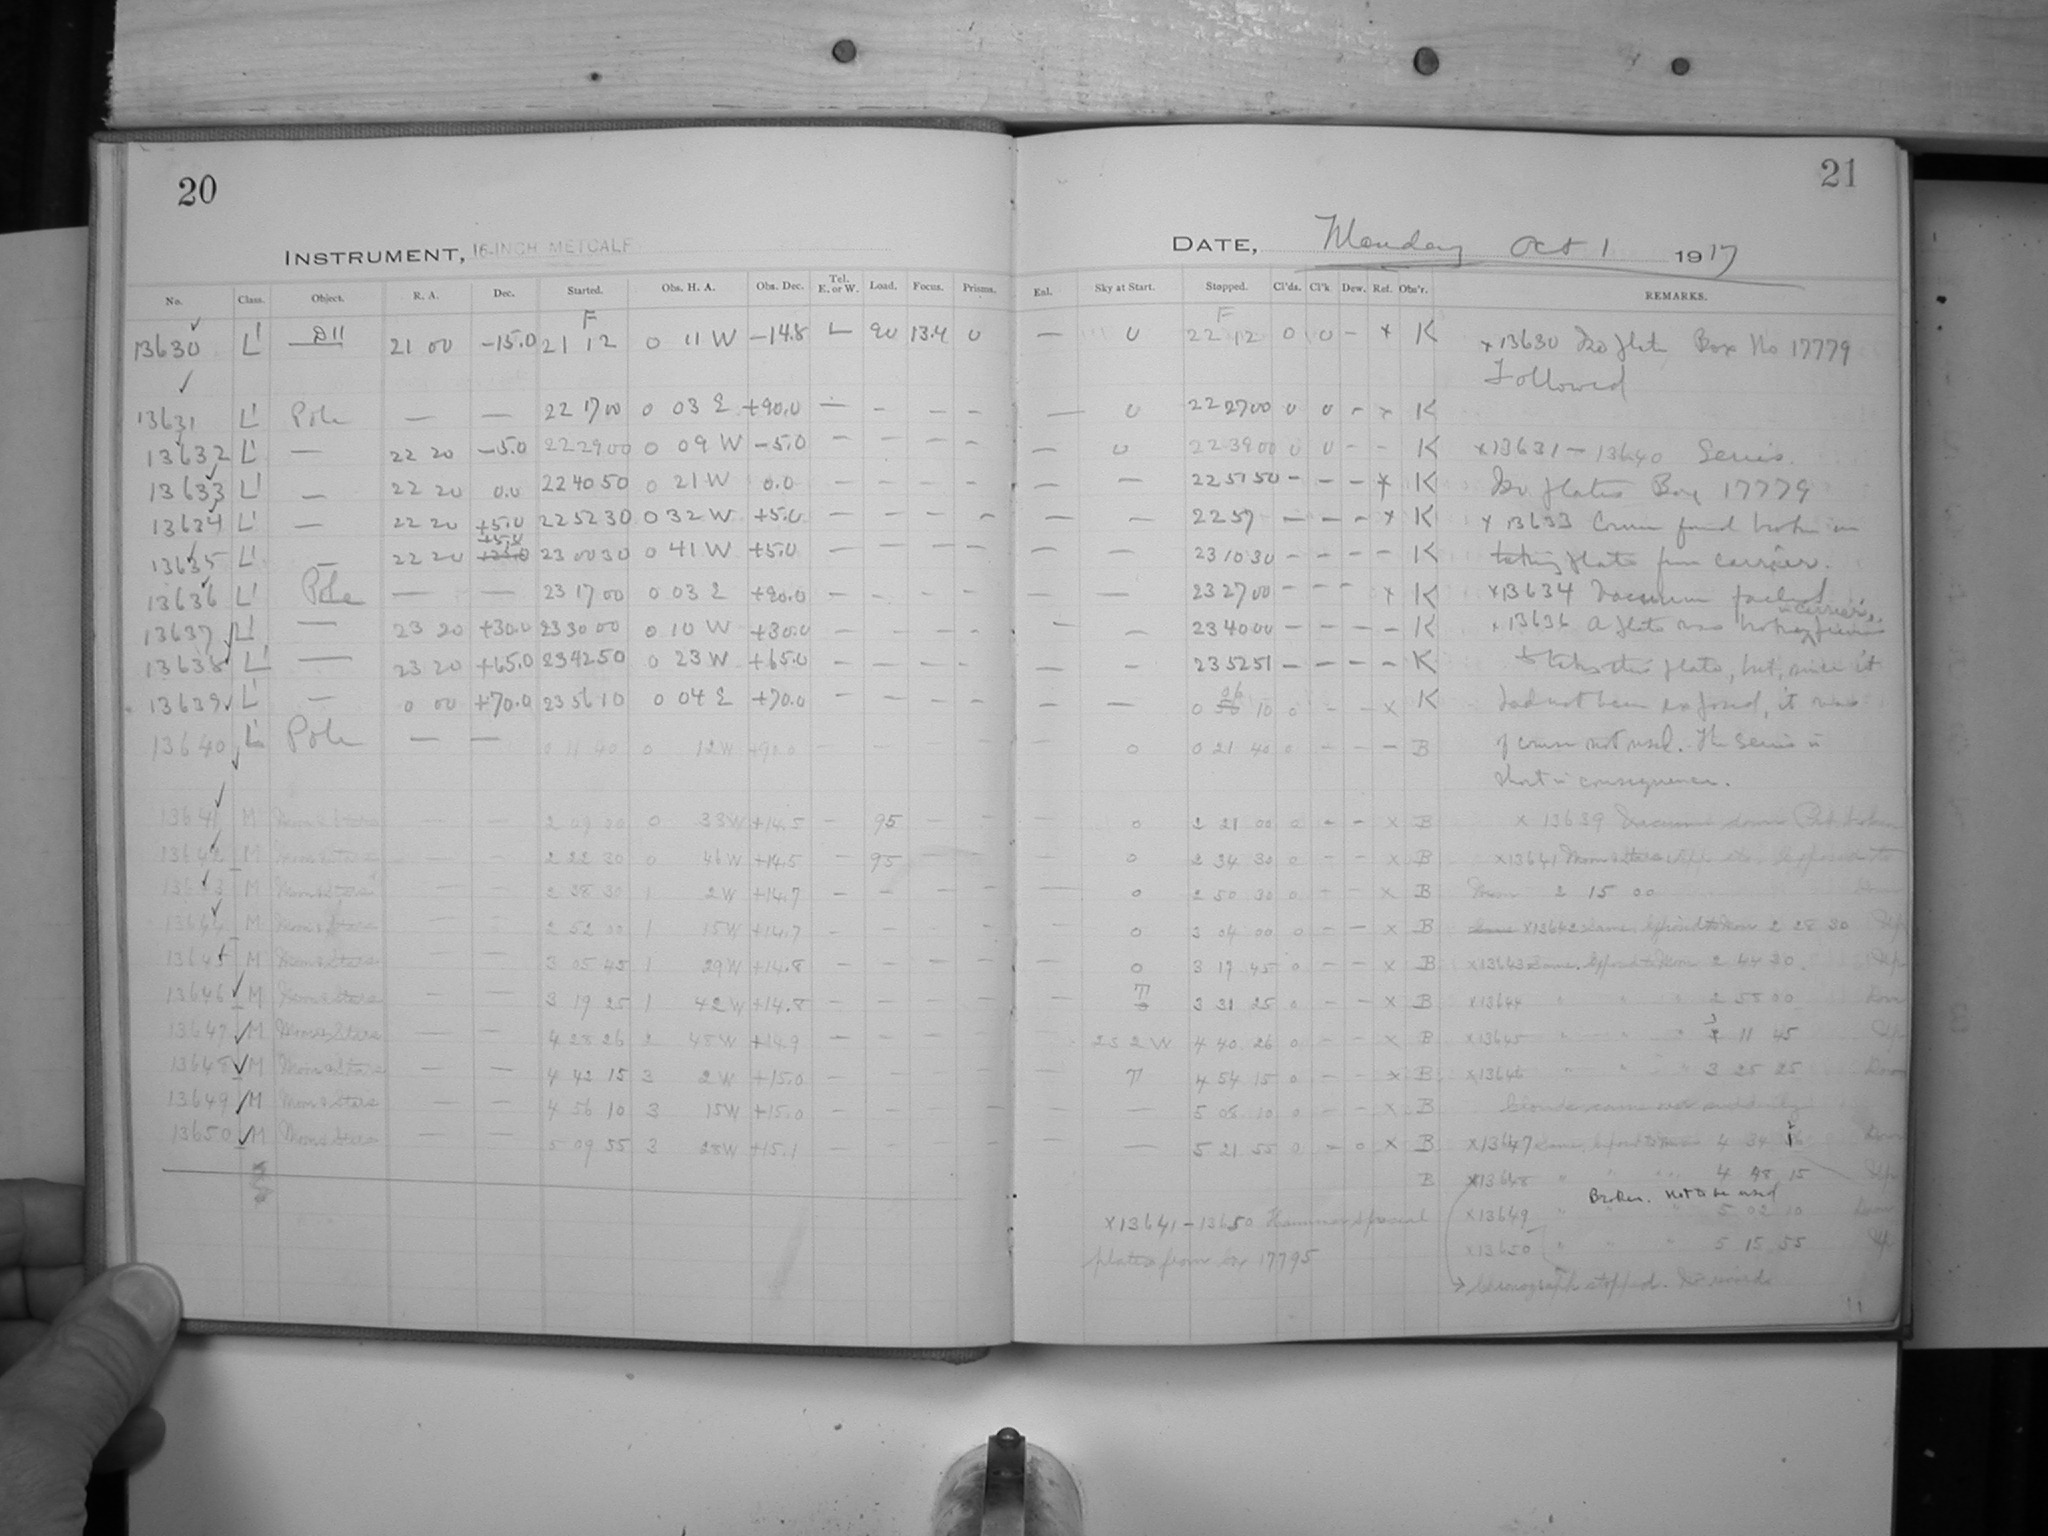 20
21
INSTRUMENT, 16-INCH METCALF
DATE, Monday Oct 1 1917
No. Class. Object. R. A. Dec. Started. Obs. H. A. Obs. Dec. Tel. E. or W. Load. Focus. Prisms. Enl. Sky at Start. Stopped. Cl'ds. Cl'k Dew. Ref. Obs'r. REMARKS.
13630 L' D11 21 00 -15.0 F 21 12 0 11 W -14.8 90 13.4 0 — 0 F 22 12 0 0 - x K x 13630 Iso plate Box No 17779
Followed
13631 L' Pole — — 22 17 00 0 03 E +90.0 — - - - — 0 22 27 00 0 0 - x K
13632 L' — 22 20 -5.0 22 29 00 0 09 W -5.0 — - - - — 0 22 39 00 0 0 - - K x13631 - 13640 Series.
13633 L' — 22 20 0.0 22 40 50 0 21 W 0.0 - - - - — — 22 51 50 - - - x K Iso plates Box 17779
13634 L' — 22 20 +5.0 22 52 30 0 32 W +5.0 - - - - — — 22 57 - - - x K x 13633 Corner found broken on
13635 L' — 22 20 +5.0 23 00 30 0 41 W +5.0 - - - - — — 23 10 30 - - - - K taking plate from carrier.
13636 L' Pole — — 23 17 00 0 03 E +90.0 - - - - — — 23 27 00 - - - x K x13634 Vacuum failed
13637 L' — 23 20 +30.0 23 30 00 0 10 W +30.0 - - - - — — 23 40 00 - - - - K x 13636 A plate was broken in carrier previous
13638 L' — 23 20 +65.0 23 42 50 0 23 W +65.0 - - - - — — 23 52 51 - - - - K to this plate, but, since it
13639 L' — 0 00 +70.0 23 56 10 0 04 E +70.0 - - - - — — 0 06 10 0 - - x K had not been exposed, it was
13640 L' Pole — — 0 11 40 0 12 W +90.0 - - - - — 0 0 21 40 0 - - - B of course not used. The series is
short in consequence.
13641 M Moon & Stars — — 2 09 30 0 33 W +14.5 - 95 - - — 0 2 21 00 0 - - x B x 13639 Vacuum down
13642 M Moon & Stars — — 2 22 30 0 46 W +14.5 - 95 - - — 0 2 34 30 0 - - x B x13641 Moon & Stars Exposed to
13643 M Moon & Stars — — 2 38 30 1 2 W +14.7 - - - - — 0 2 50 30 0 - - x B Moon 2 15 00
13644 M Moon & Stars — — 2 52 00 1 15 W +14.7 - - - - — 0 3 04 00 0 - - x B x13642 Same. Exposed to Moon 2 28 30 Up
13645 M Moon & Stars — — 3 05 45 1 29 W +14.8 - - - - — 0 3 17 45 0 - - x B x13643 Same. Exposed to Moon 2 44 30 Up
13646 M Moon & Stars — — 3 19 25 1 42 W +14.8 - - - - — 3 31 25 0 - - x B x13644 " " " 2 58 00 Down
13647 M Moon & Stars — — 4 28 26 2 48 W +14.9 - - - - — 25 2 W 4 40 26 0 - - x B x13645 " " " 3 11 45 Up
13648 M Moon & Stars — — 4 42 15 3 2 W +15.0 - - - - — 4 54 15 0 - - x B x13646 " " " 3 25 25 Down
13649 M Moon & Stars — — 4 56 10 3 15 W +15.0 - - - - — — 5 08 10 0 - - x B Clouds came over suddenly
13650 M Moon & Stars — — 5 09 55 3 28 W +15.1 - - - - — — 5 21 55 0 - 0 x B x13647 Same, Exposed to Moon 4 34 Down
B x13648 " " " 4 48 15 Up
Broken. Not to be used
x13641 - 13650 Hammer special x13649 " " " 5 02 10 Down
plates from box 17795 x13650 " " " 5 15 55 Up
Chronograph stopped. No records